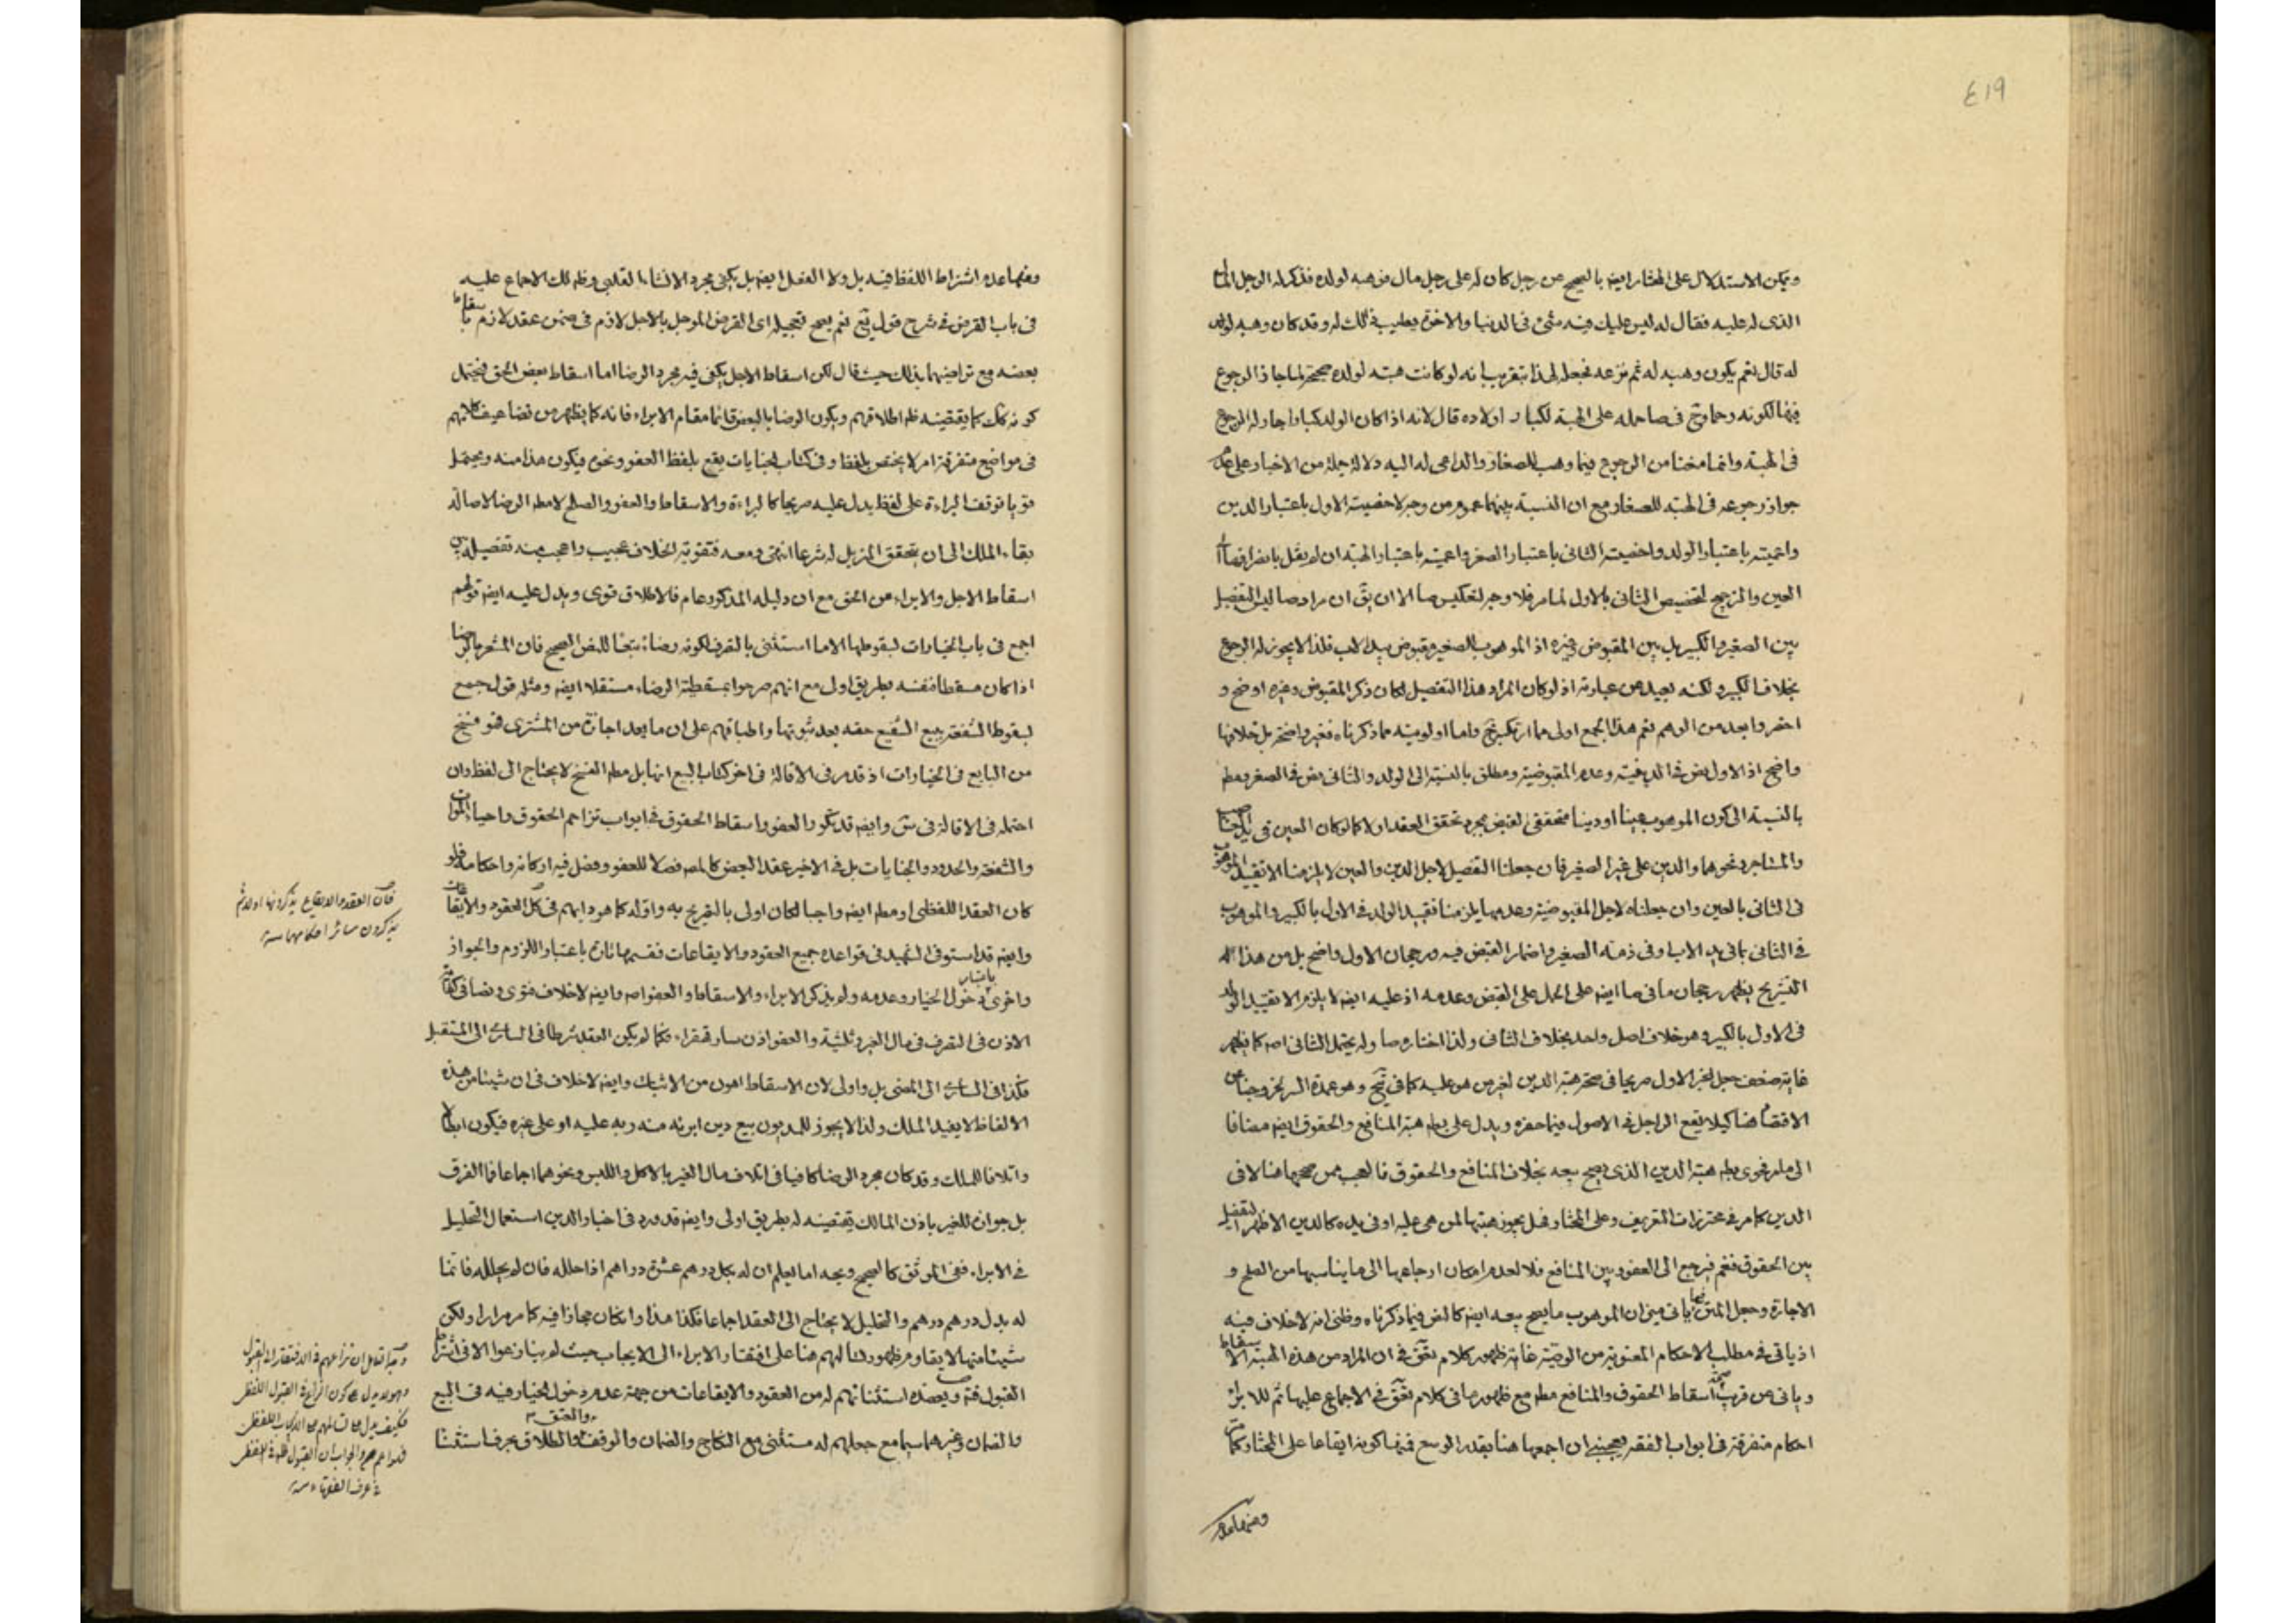 ٤١٩
ويمكن الاستدلال على المختار ايضا بالصحيح عن رجل كان له على رجل مال فوهبه لولده فذكر له الرجل المال
الذى له عليه فقال له ليس عليك فيه شئ فى الدنيا والاخرة يطيب ذلك له وقد كان وهبه لولد
له قال نعم يكون وهبه له ثم نزعه فجعله لهذا بتقريب انه لو كانت هبته لولده صحيحة لما جاز الرجوع
فيها لكونه رحما وحج فى صا حمله على الهبة لكبار اولاده قال لانه اذا كان الولد كبارا جاز له الرجوع
فى الهبة وانما منعنا من الرجوع فيما وهب للصغار والداعى له اليه دلالة جملة من الاخبار على عدم
جواز رجوعه فى الهبة للصغار مع ان النسبة بينهما عموم من وجه لاخصية الاول باعتبار الدين
واعميته باعتبار الولد واخصية الثانى باعتبار الصغر واعميته باعتبار الهبة ان لم يقل بانصرافها الى
العين والترجيح لتخصيص الثانى بالاول لما مر فلا وجه لتعكيس صا الا ان يق ان مراد صا ليس التفصيل
بين الصغير والكبير بل بين المقبوض وغيره اذ الموهوب للصغير مقبوض بيد الاب فلذا لا يجوز له الرجوع
بخلاف الكبير ولكنه بعيد من عبارته اذ لو كان المراد هذا التفصيل لكان ذكر المقبوض وغيره اوضح و
اخصر وابعد من الوهم نعم هذا الجمع اولى مما ارتكبه يخ واما اولويته مما ذكرناه فغير واضحة بل خلافها
واضح اذ الاول نص فى الدينية وعدم المقبوضية ومطلق بالنسبة الى الولد والثانى نص فى الصغر ومطم
بالنسبة الى كون الموهوب عينا او دينا متحققى القبض بمجرد تحقق العقد اولا كما لو كان العين فى يد الغاصب
والمستاجر ونحوهما والدين على غير الصغير فان جعلنا التفصيل لاجل الدين والعين لا يلزمنا الا تقييد الموهوب
فى الثانى بالعين وان جعلناه لاجل المقبوضية وعدمها يلزمنا تقييد الولد فى الاول بالكبير والموهوب
فى الثانى بما فى يد الاب او فى ذمته الصغير واضمار القبض فيه ورجحان الاول واضح بل من هذا
التشريح يظهر رجحان ما فى صا ايضا على الحمل على القبض وعدمه اذ عليه ايضا لا يلزم الا تقييد الولد
فى الاول بالكبير وهو خلاف اصل واحد بخلاف الثانى ولذا اختاره صا ولم يحتمل الثانى اصه كما يظهر
غاية ضعف جعل الخبر الاول صريحا فى صحة هبة الدين لغير من هو عليه كما فى يخ وهو عمدة السر لخروجنا عن
الاقتصار هنا كيلا يقع الراجل فى الاصول فيما حفره ويدل على بطه هبة المنافع والحقوق ايضا مضافا
الى ما مر فحوى بطه هبة الدين الذى يصح بيعه بخلاف المنافع والحقوق فالعجب ممن صححها هنا لا فى
الدين كما مر فى محترزات التعريف وعلى المختار فهل يجوز هبتها لمن هى عليه او فى يده كالدين الاظهر التفصيل
بين الحقوق فنعم فيرجع الى العفو وبين المنافع فلا لعدم امكان ارجاعها الى ما يناسبها من الصلح و
الاجارة وجعل المتن فيما ياتى ميزان الموهوب ما يصح بيعه ايضا كالنص فيما ذكرناه وظنى انه لا خلاف فيه
اذ ياتى فى مطلب الاحكام المعنوية من الوصية غاية ظهور كلام يقق فى ان المراد من هذه الهبة الاسقاط
وياتى عن قريب صحة اسقاط الحقوق والمنافع مطه مع ظهور ما فى كلام يقق فى الاجماع عليها ثم للابراء
احكام متفرقة فى ابواب الفقه يعجبنى ان اجمعها هنا بقدر الوسع فمنها كونه ايقاعا على المختار كما مر
ومنها عدم
ومنها عدم اشتراط اللفظ فيه بل ولا الفعل ايضا بل يكفى مجرد الانشاء القلبى وظه لك الاجماع عليه
فى باب القرض فى شرح قول يع نعم يصح تعجيله اى القرض المؤجل بالاجل لازم فى ضمن عقد لازم باسقاط
بعضه مع تراضيهما بذلك حيث قال لكن اسقاط الاجل يكفى فيه مجرد الرضا اما اسقاط بعض الحق فيحتمل
كونه كك كما يقتضيه ظه اطلاقهم ويكون الرضا بالبعض قائما مقام الابراء فانه كما يظهر من تضاعيف كلامهم
فى مواضع متفرقة امر لا يختص بلفظ وفى كتاب الجنايات يقع بلفظ العفو ونحوه فيكون هذا منه ويحتمل
قويا توقف البراءة على لفظ يدل عليه صريحا كالبراءة والاسقاط والعفو والصلح لا مطه الرضا لاصالة
بقاء الملك الى ان يتحقق المزيل له شرعا انتهى ومعه فتقوية الخلاف عجيب واعجب منه تفصيله بين
اسقاط الاجل والابراء من الحق مع ان دليله المذكور عام فالاطلاق قوى ويدل عليه ايضا قولهم
اجمع فى باب الخيارات بسقوطها الا ما استثنى بالتصرف لكونه رضاء تبعا للنص الصحيح فان المشعر بالرضا
اذا كان مسقطا فنفسه بطريق اولى مع انهم صرحوا بمسقطية الرضاء مستقلا ايضا ومثله قول جمع
بسقوط الشفعة ببيع الشفيع حقه بعد ثبوتها واطباقهم على ان ما يعد اجازة من المشترى فهو فسخ
من البايع فى الخيارات اذ قد مر فى الاقالة فى اخر كتاب البيع انها بل مطه الفسخ لا يحتاج الى لفظ وان
احتمله فى الاقالة فى س وايضا قد تكرر العفو واسقاط الحقوق فى ابواب تزاحم الحقوق واحياء الموات
والشفعة والحدود والجنايات بل فى الاخير عقد البعض كالمص فصلا للعفو وفصل فيه اركانه واحكامه فلو
كان العقد اللفظى او مطه ايضا واجبا لكان اولى بالتصريح به واوله كما هو دابهم فى كل العقود والايقاعات
وايضا قد استوفى الشهيد فى قواعده جميع العقود والايقاعات فقسمها تارة باعتبار اللزوم والجواز
واخرى باعتبار دخول الخيار وعدمه ولم يذكر الابراء والاسقاط والعفو اصه وايضا لا خلاف فتوى ونصا فى كفاية
الاذن فى التصرف فى مال الغير وثلثيه والعفو اذن سار قهقراء فكما لم يكن العقد شرطا فى السارى الى المستقبل
فكذا فى السارى الى المضى بل واولى لان الاسقاط اهون من الاثبات وايضا لا خلاف فى ان شيئا من هذه
الالفاظ لا يفيد الملك ولذا لا يجوز للمديون بيع دين ابرئه منه ربه عليه او على غيره فيكون ابطالا
واتلافا للملك وقد كان مجرد الرضا كافيا فى اتلاف مال الغير بالاكل واللبس ونحوهما اجماعا فما الفرق
بل جوازه للغير باذن المالك يقتضيه له بطريق اولى وايضا قد ورد فى اخبار الدين استعمال التحليل
فى الابراء ففى الموثق كالصحيح ويحه اما يعلم ان له بكل درهم عشرة دراهم اذا حلله فان لم يحلله فانما
له بدل درهم درهم والتحليل لا يحتاج الى العقد اجماعا فكذا هذا وان كان مجازا فيه كما مر مرارا ولكن
شيئا منها لا يقاوم ظهور تسالمهم هنا على افتقار الابراء الى الايجاب حيث لم يتنازعوا الا فى اشتراط
القبول فتم ويعضده استثنائهم له من العقود والايقاعات من جهة عدم دخول الخيار فيه فى البيع
والضمان وغيرهما سيما مع جعلهم له مستثنى مع النكاح والضمان والوقف والعتق والطلاق بحرف استثناء
فان العقد والايقاع يذكرونها اولا ثم
يذكرون سائر احكامها منه